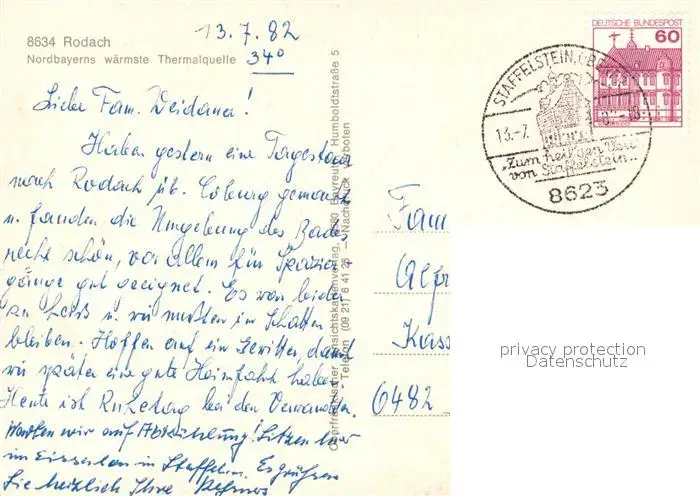 8634 Rodach
Nordbayerns wärmste Thermalquelle
13.7.82
34°
Liebe Fam. Weidauer!
Haben gestern eine Tagestour
nach Rodach üb. Coburg gemacht
u. fanden die Umgebung des Bades
recht schön, vor allem für Spazier-
gänge gut geeignet. Es war leider
zu heiß u. wir mußten im Schatten
bleiben. Hoffen auf ein Gewitter, damit
wir später eine gute Heimfahrt haben.
Heute ist Ruhetag bei den Verwandten.
Warten wir auf Abkühlung! Sitzen hier
im Eissalon in Staffelstn. Es grüßen
Sie herzlich Ihre
Oberfränkischer Ansichtskartenverlag, 8580 Bayreuth, Humboldtstraße 5
Telefon (09 21) 6 41 26 – Nachdruck verboten
DEUTSCHE BUNDESPOST
60
STAFFELSTEIN, OBERFR
13.-7.
82.-18
„Zum heiligen Veit
von Staffelstein..."
8623
Fam
Kass
6482
privacy protection
Datenschutz